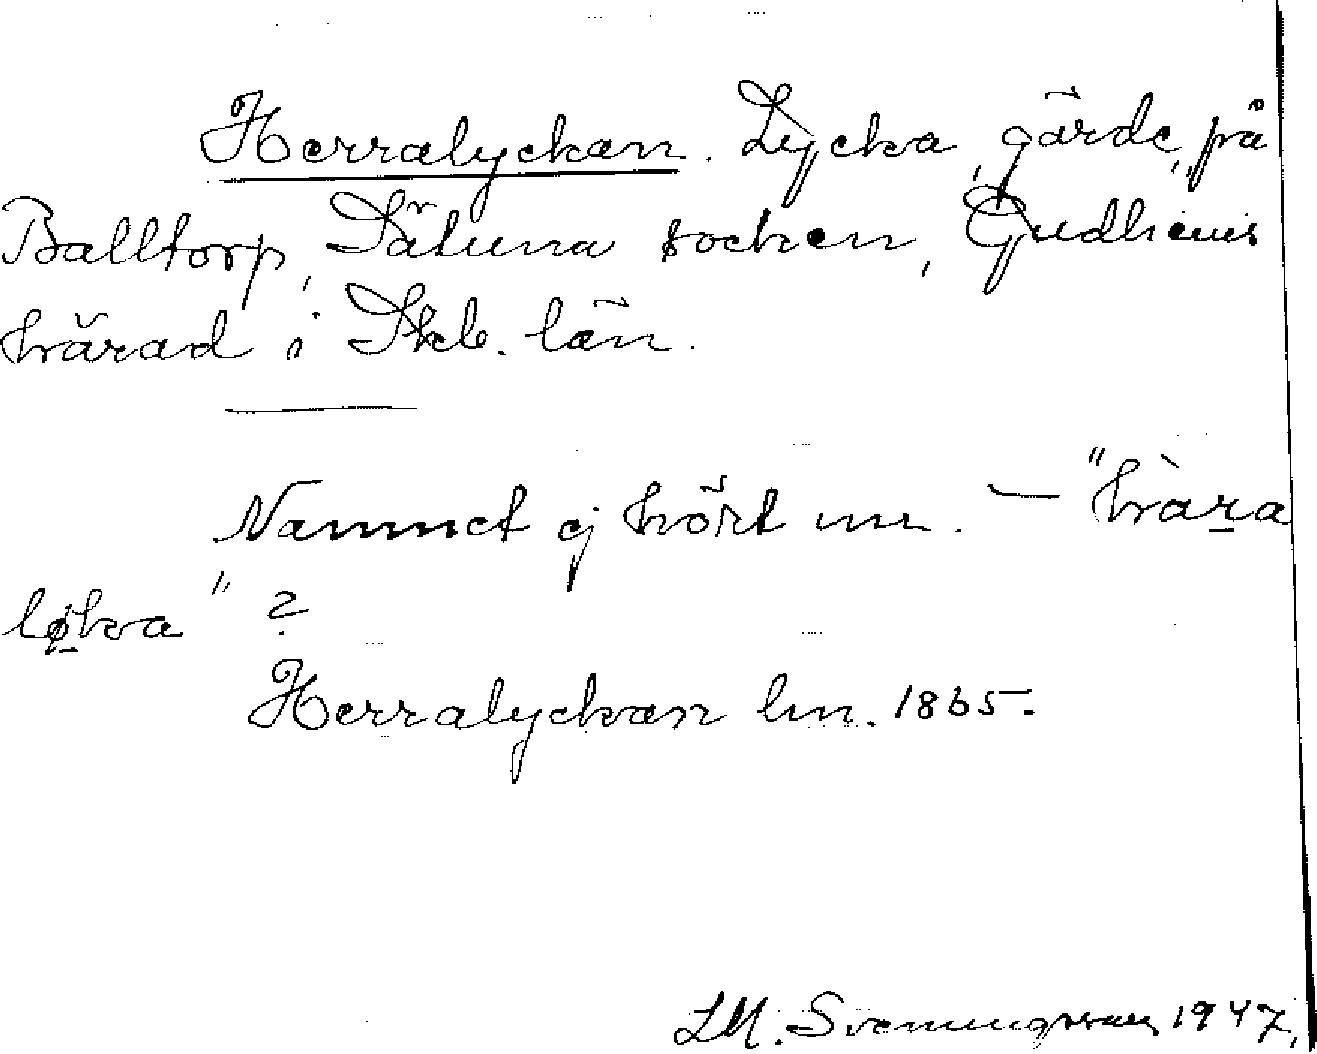 Herralyckan. Lycka, gärde, på
Balltorp, Sätuna socken, Gudhems
härad i Skb. län.
Namnet ej hört nu. — "hàra
løka" ?
Herralyckan lm. 1865.
LM. Svenungsson 1947.